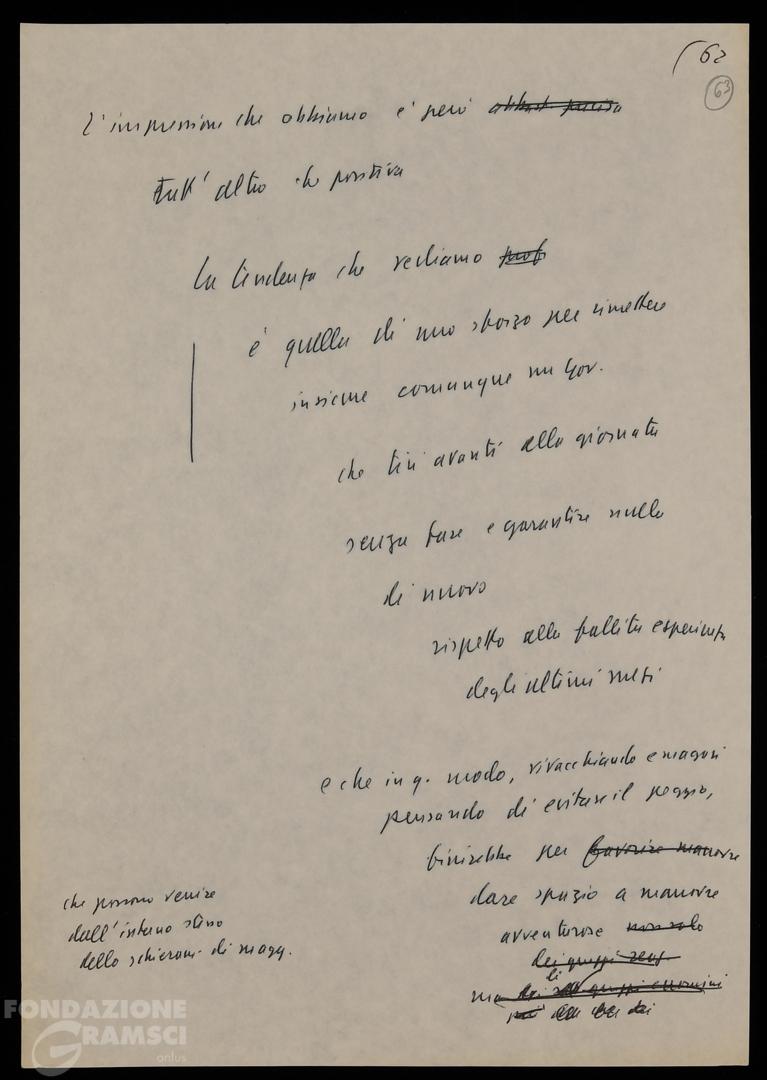 62
63
L'impressione che abbiamo è però abbast. precisa
tutt'altro che positiva
La tendenza che vediamo
è quella di uno sforzo per rimettere
insieme comunque un Gov.
che tiri avanti alla giornata
senza dare e garantire nulla
di nuovo
rispetto alla fallita esperienza
degli ultimi mesi
e che in q. modo, vivacchiando e magari
pensando di evitare il peggio,
finirebbe per favorire manovre
dare spazio a manovre
avventurose non solo
dei gruppi
ma gruppi
dai
che possono venire
dall'interno stesso
dello schieram. di magg.
FONDAZIONE
GRAMSCI
onlus